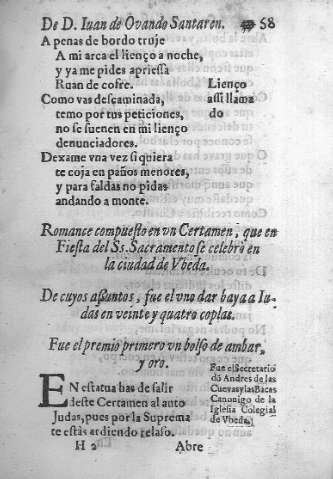 De D. Iuan de Ovando Santaren. 58
A penas de bordo truje
A mi arca el lienço a noche,
y ya me pides apriessa
Ruan de cofre.
Lienço
assi llama
do
Como vas descaminada,
temo por tus peticiones,
no se suenen en mi lienço
denunciadores.
Dexame vna vez siquiera
te coja en paños menores,
y para faldas no pidas
andando a monte.
Romance compuesto en vn Certamen, que en
Fiesta del Ss. Sacramento se celebrò en
la ciudad de Vbeda.
De cuyos assuntos, fue el vno dar baya a Iu-
das en veinte y quatro coplas.
Fue el premio primero vn bolso de ambar,
y oro.
Fue el Secretario
dō Andres de las
Cuevas y las Bacas
Canonigo de la
Iglesia Colegial
de Vbeda.
EN estatua has de salir
deste Certamen al auto
Judas, pues por la Suprema
te estàs ardiendo relaso.
H 2 Abre